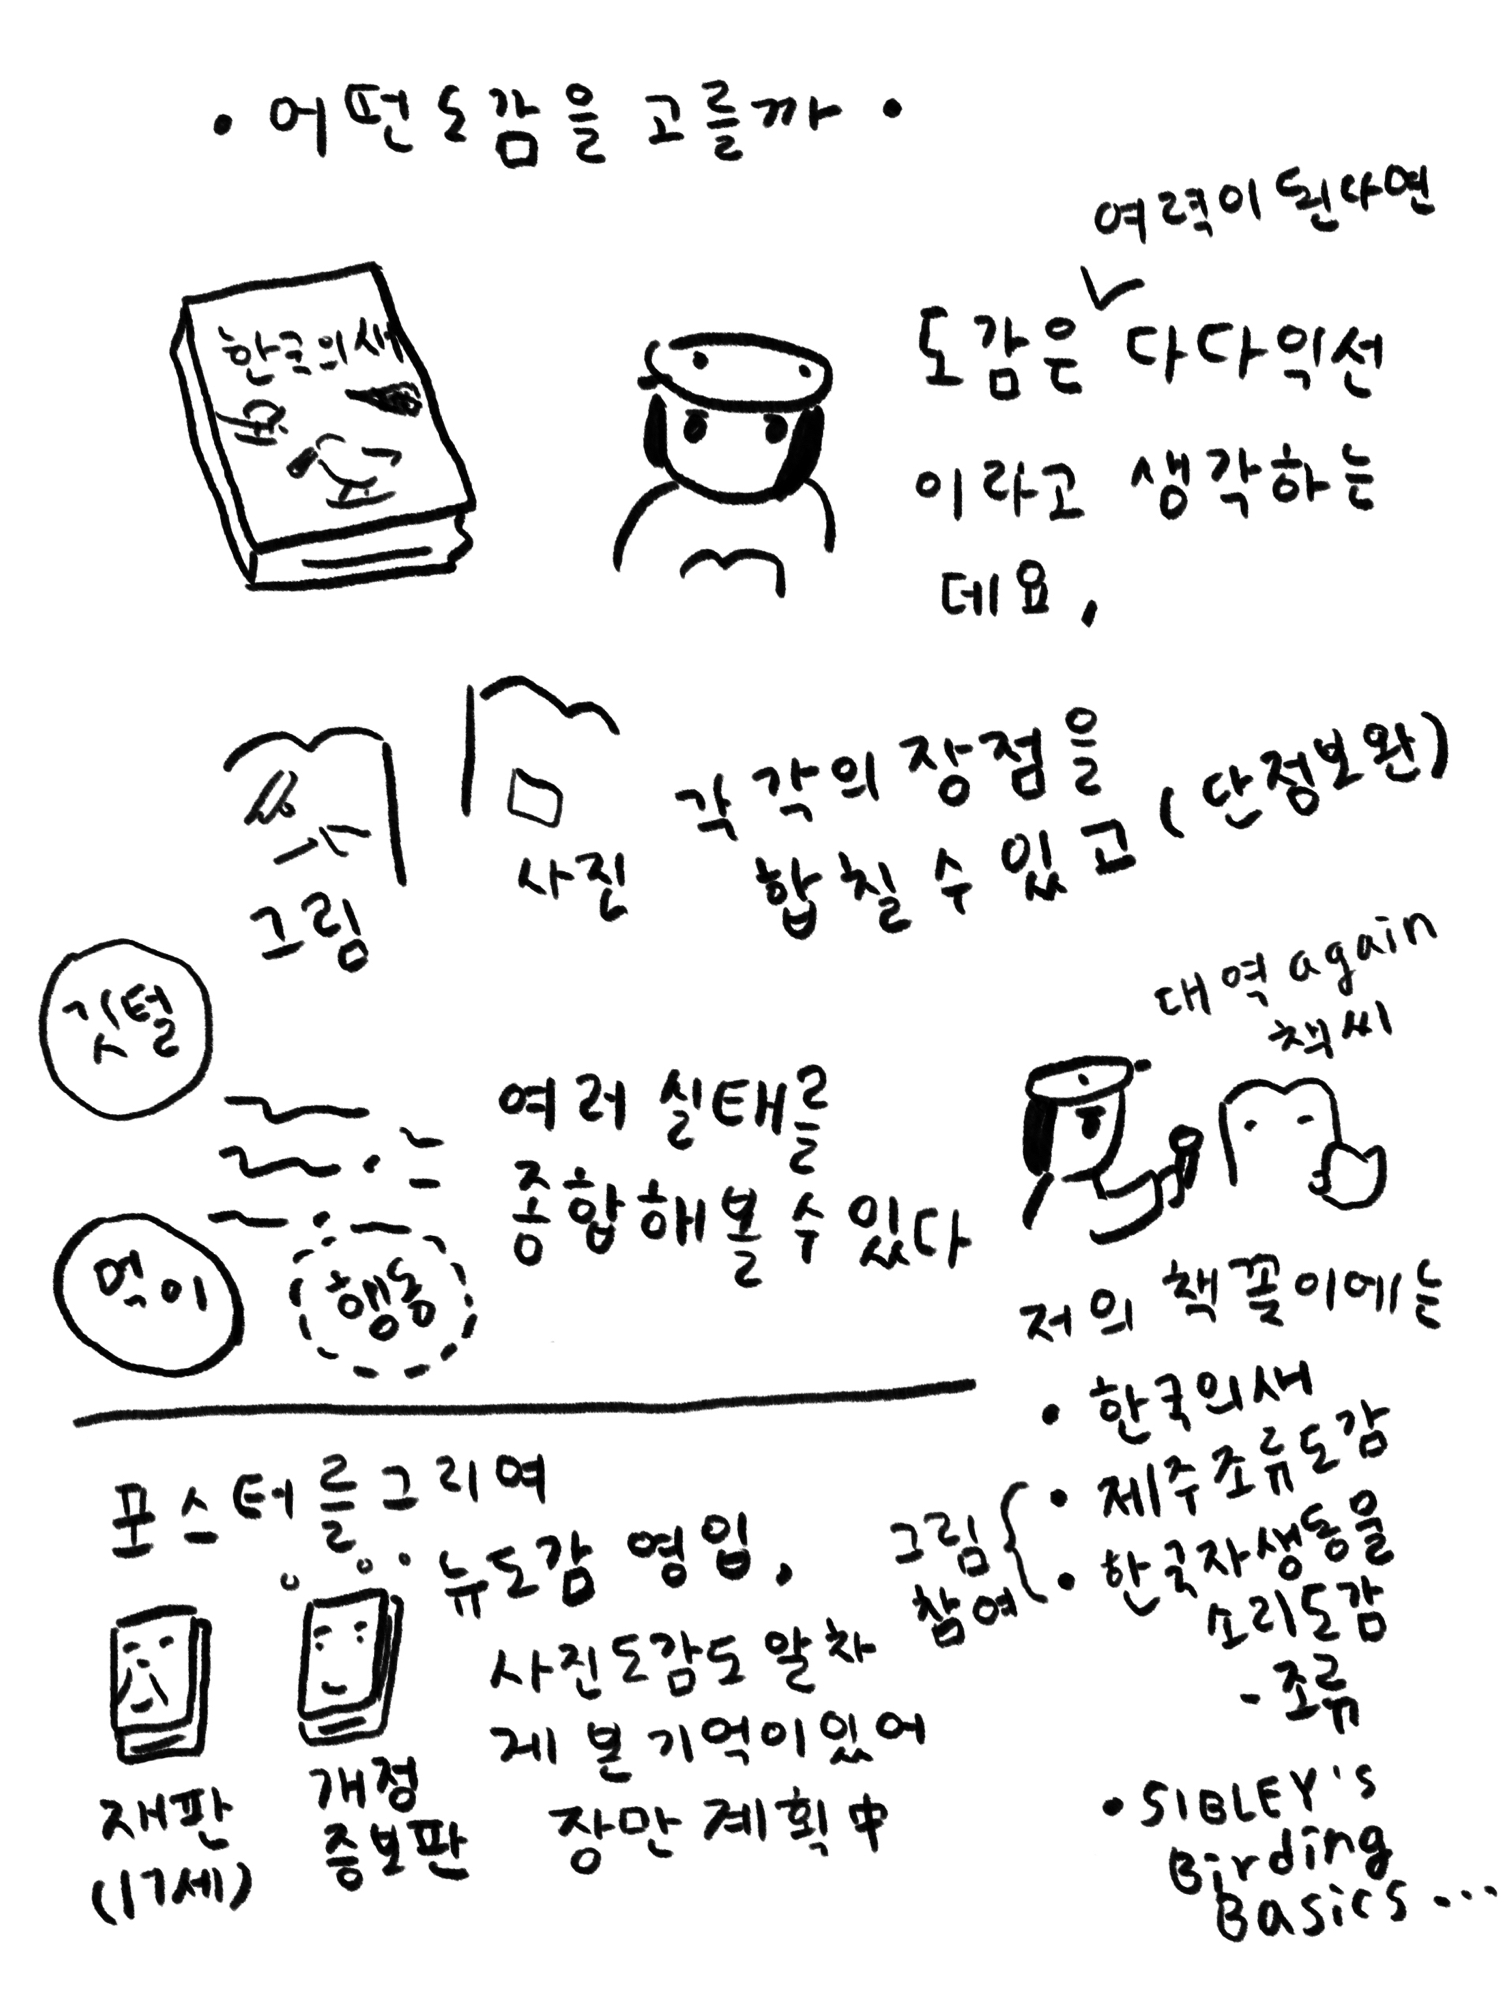 • 어떤 도감을 고를까 •
여력이 된다면
한국의 새
도감은 ✓ 다다익선
이라고 생각하는
데요,
그림
사진
각각의 장점을
합칠 수 있고 (단점보완)
깃털
먹이
행동
여러 실태를
종합해볼 수 있다
대역 again
책씨
저의 책꽂이에는
• 한국의새
• 제주조류도감
• 한국자생동물
소리도감
- 조류
그림
참여
• SIBLEY's
Birding
Basics ...
포스터를 그리며
뉴도감 영입,
사진도감도 알차
게 본 기억이 있어
장만 계획 中
재판
(17세)
개정
증보판